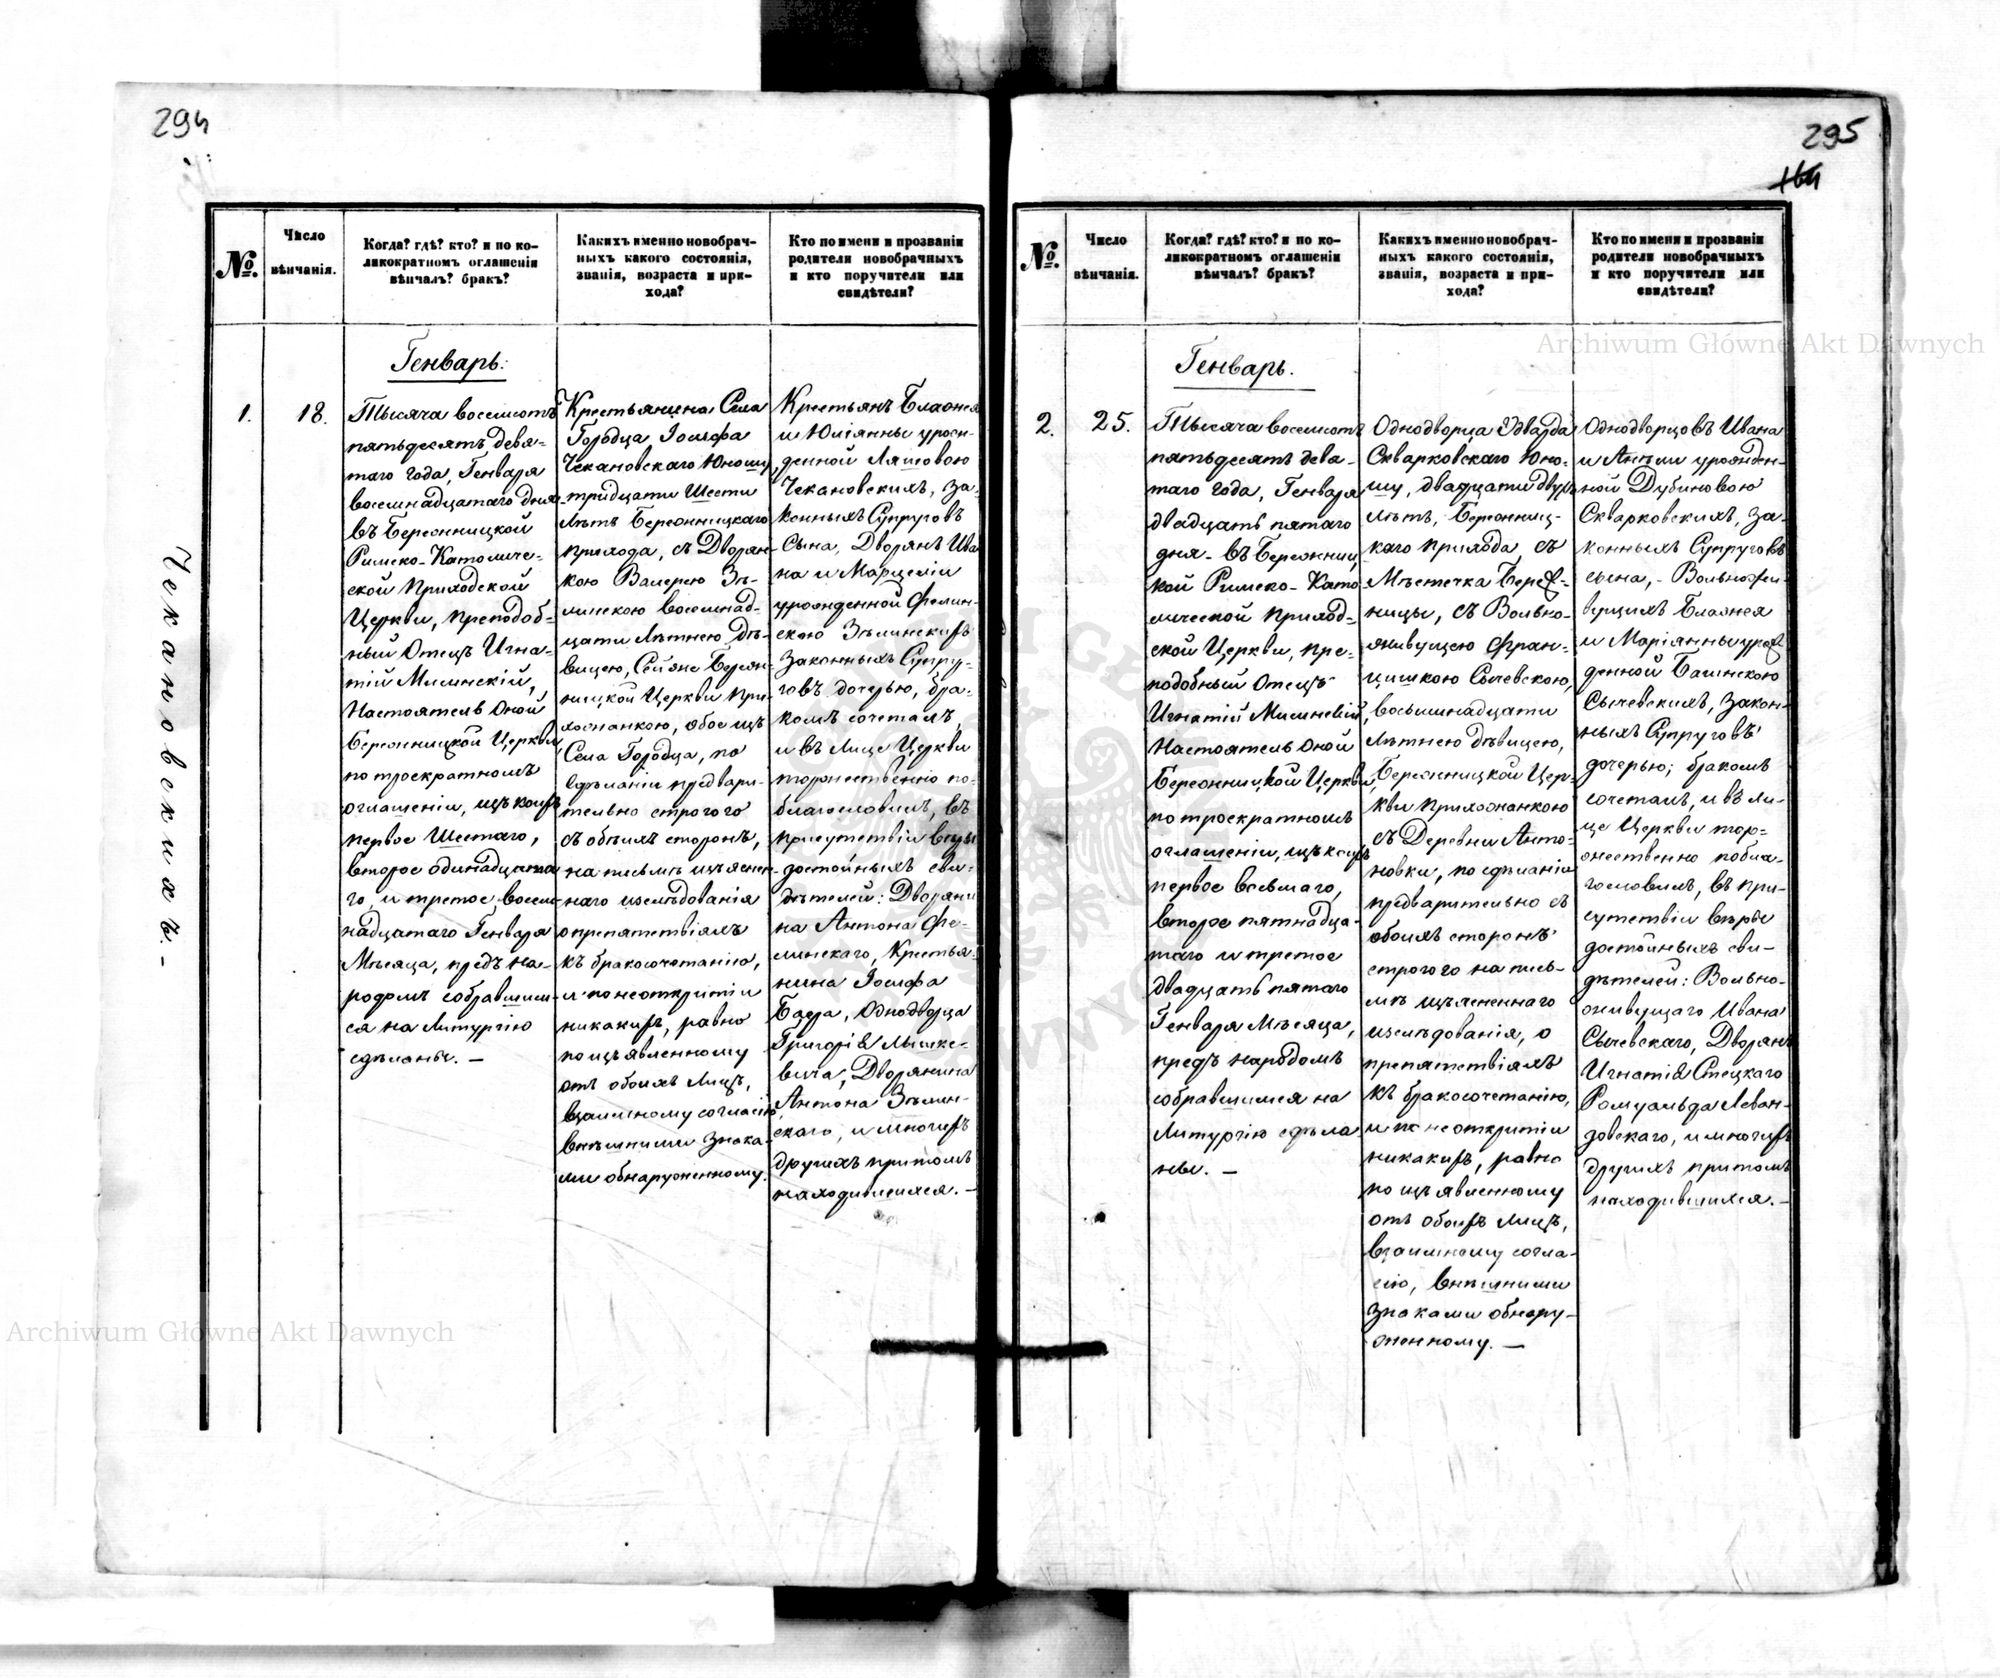 294
295
164
№.
Число
вѣнчанія.
Когда? гдѣ? кто? и по ко-
ликократномъ оглашеніи
вѣнчалъ? бракъ?
Какихъ именно новобрач-
ныхъ какого состоянія,
званія, возраста и при-
хода?
Кто по имени и прозваніи
родители новобрачныхъ
и кто поручители или
свидѣтели?
Чекановскихъ.-
1.
18.
Генварь:
Тысяча восемьсотъ
пятьдесятъ девя-
таго года, Генваря
восемнадцатаго дня
въ Бережницкой
Римско-Католиче-
ской Приходской
Церкви, Преподоб-
ный Отецъ Игна-
тій Милинскій,
Настоятель оной
Бережницкой Церкви,
по троекратномъ
оглашеніи, изъ коихъ
первое Шестаго,
второе одинадцата-
го, и третое восем-
надцатаго Генваря
Мѣсяца, предъ на-
родомъ собравшим-
ся на Литургію
сдѣланы. —
Крестьянина Села
Городца, Іосифа
Чекановскаго Юношу,
тридцати Шести
лѣтъ Бережницкаго
прихода, съ Дворян-
кою Валерею Зѣ-
линскою восемнад-
цати Лѣтнею дѣ-
вицею, Сейже Береж-
ницкой Церкви При-
хожанкою, обое изъ
Села Городца, по
сдѣланіи предвари-
тельно строгого
съ обѣихъ сторонъ,
на письмѣ изъяснен-
наго изслѣдованія
о препятствіяхъ
къ бракосочетанію,
и по неоткрытіи
никакихъ, равно
по изъявленному
отъ обоихъ Лицъ,
взаимному согласію
внѣшними знака-
ми обнаруженному.
Крестьянъ Блажея
и Юліянны урож-
денной Ляховою
Чекановскихъ, за-
конныхъ Супруговъ
Сына, Дворянъ Ива
на и Марцеліи
урожденной Фелин-
скою Зѣлинскихъ
Законныхъ Супру-
говъ дочерью, бра-
комъ сочеталъ
и въ Лице Церкви
торжественно по-
благословилъ, въ
присутствіи вѣры
достойныхъ сви-
дѣтелей: Дворяни
на Антона Фе-
линскаго, Крестья-
нина Іосифа
Однодворца
Григорія Мышке-
вича, Дворянина
Антона Зѣлин-
скаго, и многихъ
другихъ притомъ
находившихся. —
№.
Число
вѣнчанія.
Когда? гдѣ? кто? и по ко-
ликократномъ оглашеніи
вѣнчалъ? бракъ?
Какихъ именно новобрач-
ныхъ какого состоянія,
званія, возраста и при-
хода?
Кто по имени и прозваніи
родители новобрачныхъ
и кто поручители или
свидѣтели?
2.
25.
Генварь.
Тысяча восемьсотъ
пятьдесятъ девя-
таго года, Генваря
двадцать пятаго
дня - въ Бережниц
кой Римско-Като
лической Приход-
ской Церкви, Пре-
подобный Отецъ
Игнатій Милинскій,
Настоятель оной
Бережницкой Церкви,
по троекратномъ
оглашеніи, изъ коихъ
первое восьмаго,
второе пятнадца-
таго и третое
двадцать пятаго
Генваря Мѣсяца,
предъ народомъ
собравшимся на
Литургію сдѣла
ны. —
Однодворца Эдварда
Скварковскаго Юно-
шу, двадцати двухъ
лѣтъ, Бережниц-
каго прихода, съ
Мѣстечка Береж-
ницы, съ Вольно-
живущею Фран-
цишкою Сычевскою,
восьмнадцати
лѣтнею дѣвицею,
Бережницкой Цер-
кви Прихожанкою
съ Деревни Анто-
новки, по сдѣланіи
предварительно съ
обоихъ сторонъ
строгого на пись-
мѣ изъясненнаго
изслѣдованія, о
препятствіяхъ
къ бракосочетанію,
и по неоткрытіи
никакихъ, равно
по изъявленному
отъ обоихъ лицъ,
взаимному согла-
сію, внѣшними
знаками обнару-
женному. —
Однодворцовъ Ивана
и Анѣли урожден-
ной Дубиновою
Скварковскихъ, за-
конныхъ Супруговъ
сына, - Вольножи-
вущихъ Блажея
и Маріянны урож
денной Багинскою
Сычевскихъ, закон-
ныхъ Супруговъ
дочерью; бракомъ
сочеталъ, и въ ли-
це Церкви тор-
жественно побла-
гословилъ, въ при-
сутствіи вѣры
достойныхъ сви-
дѣтелей: Вольно-
живущаго Ивана
Сычевскаго, Дворянъ
Игнатія Стецкаго
Ромуальда Леван-
довскаго, и многихъ
другихъ притомъ
находившихся. —
Archiwum Główne Akt Dawnych
Archiwum Główne Akt Dawnych